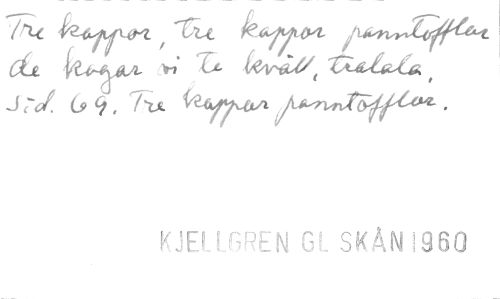 Tre kappor, tre kappor panntofflor
de kogar vi te kväll, tralala,
sid. 69. Tre kappar panntofflor.
KJELLGREN GL SKÅN 1960